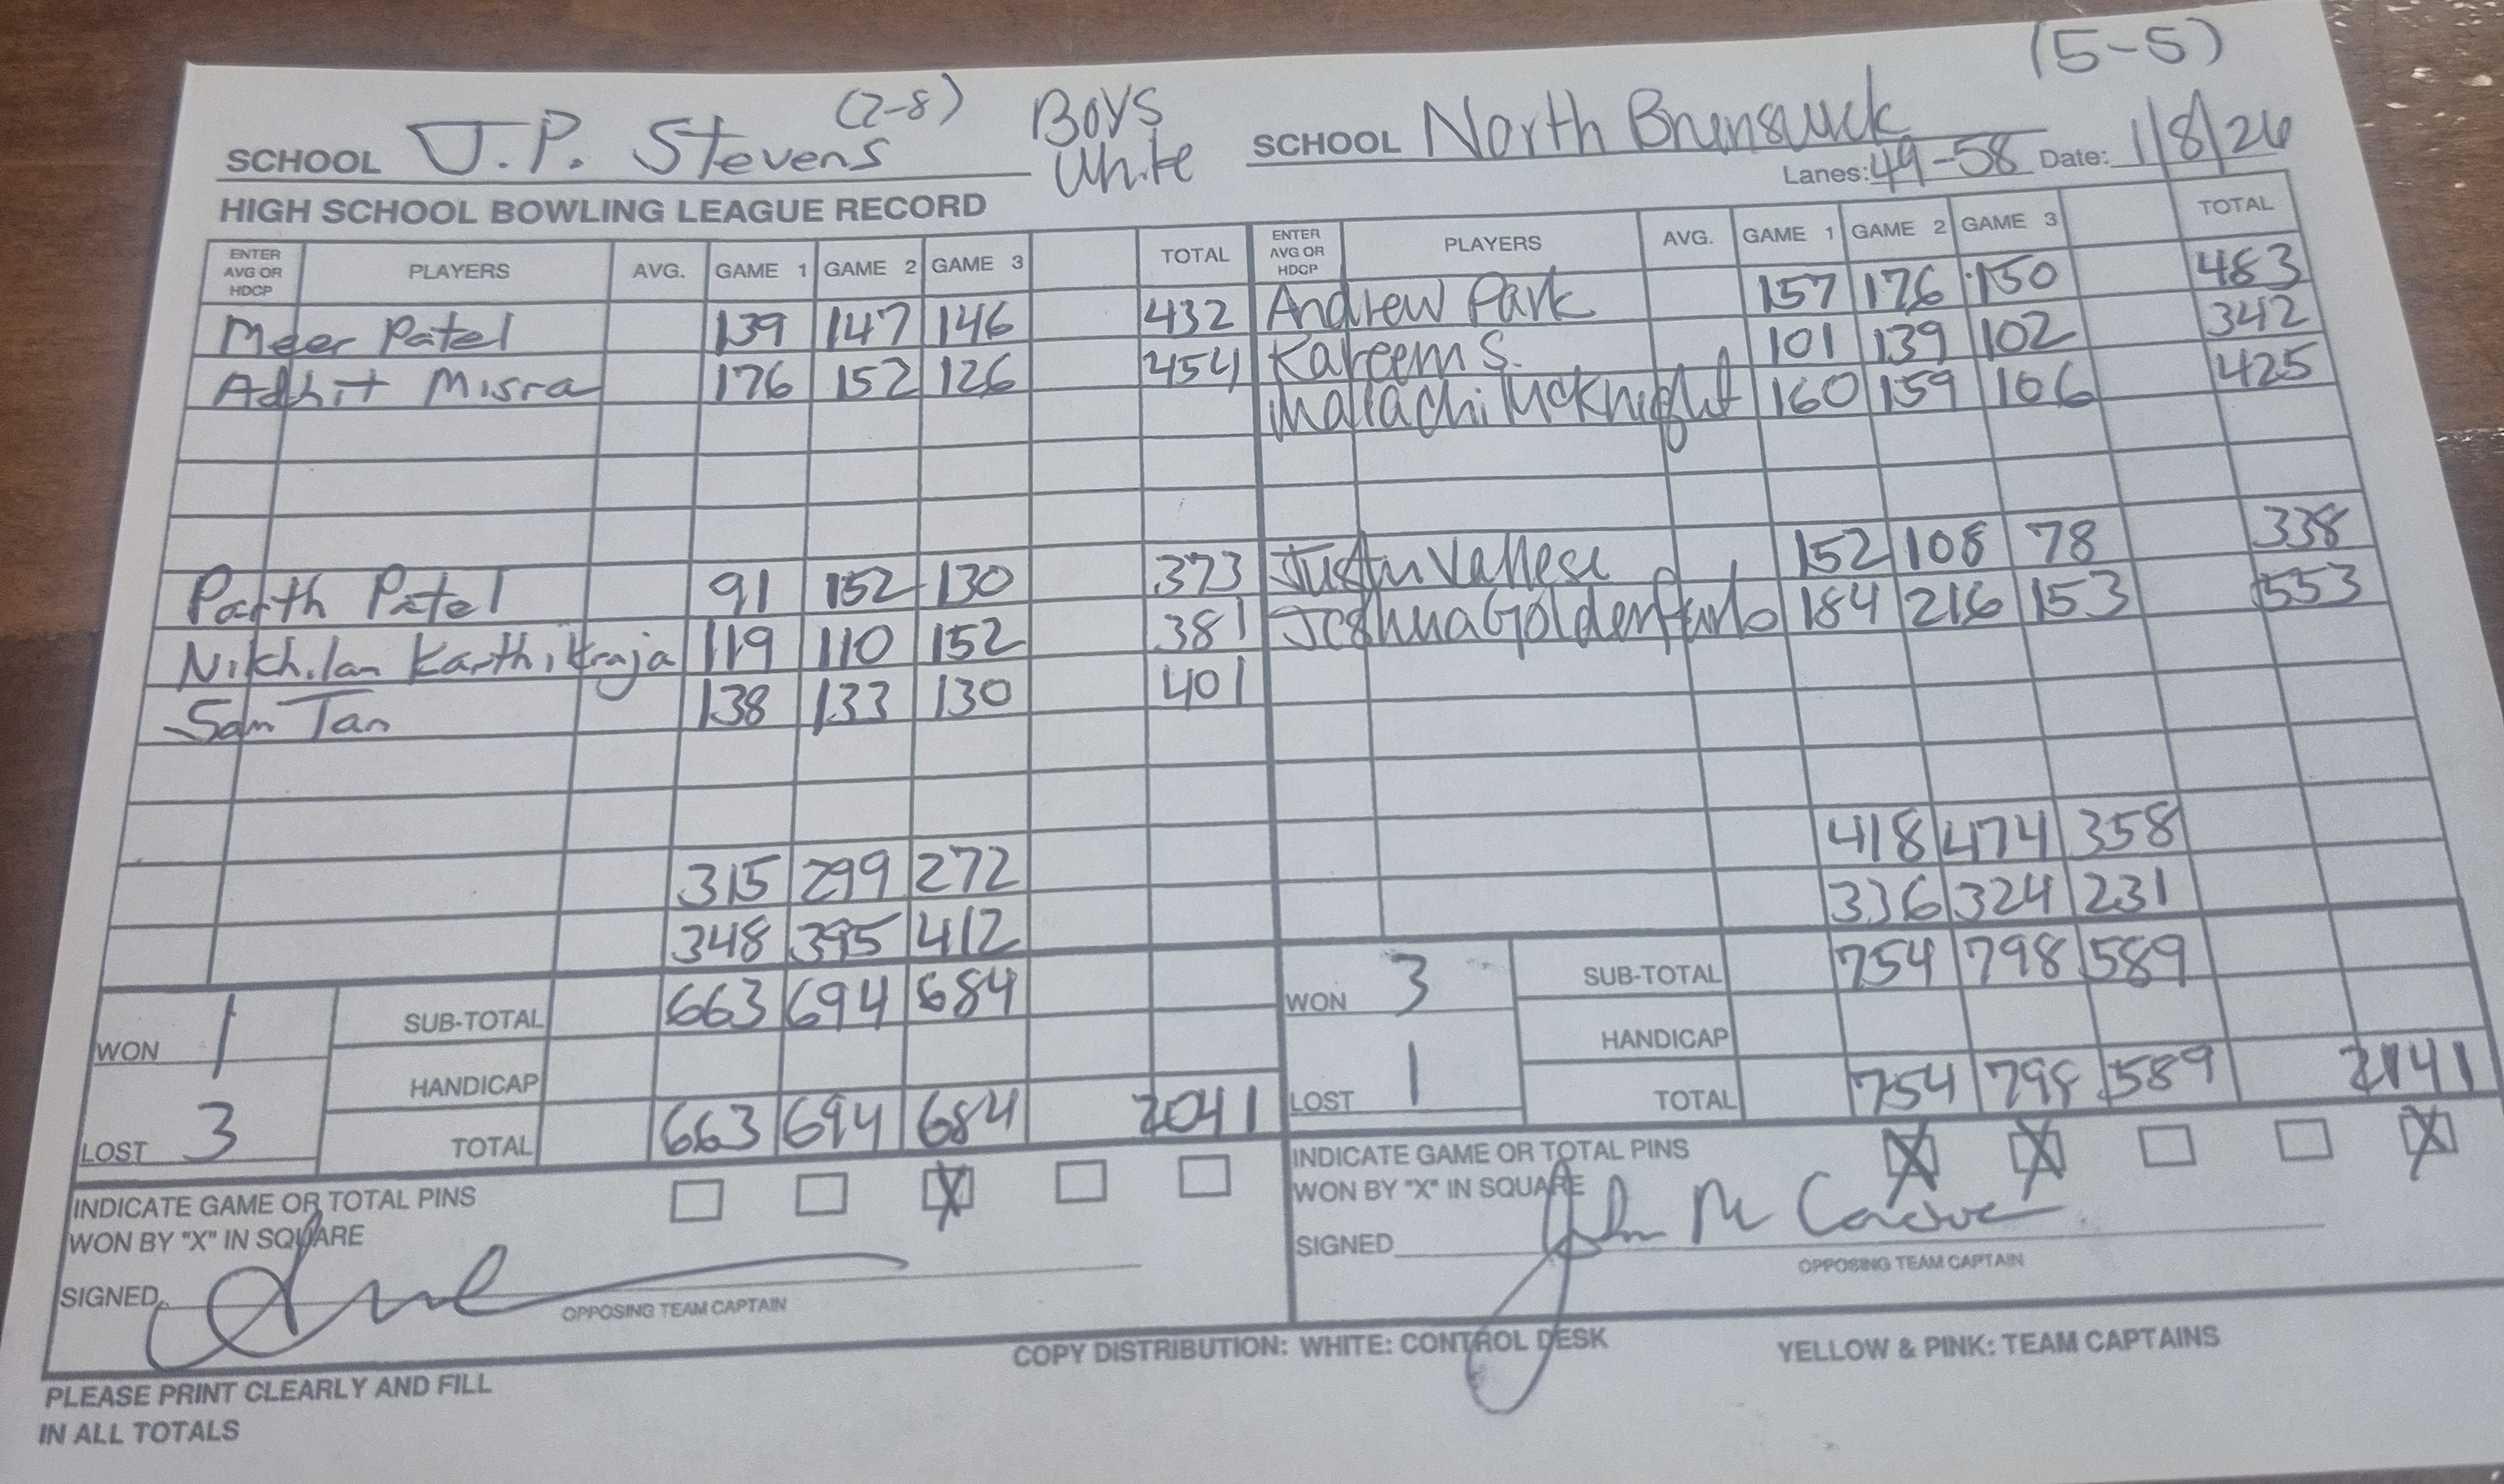 (5-5)
(2-8) Boys
SCHOOL J.P. Stevens White SCHOOL North Brunswick
Lanes: 49-58 Date: 1/8/26
HIGH SCHOOL BOWLING LEAGUE RECORD
ENTER AVG OR HDCP PLAYERS AVG. GAME 1 GAME 2 GAME 3 TOTAL ENTER AVG OR HDCP PLAYERS AVG. GAME 1 GAME 2 GAME 3 TOTAL
Meer Patel 139 147 146 432 Andrew Park 157 176 150 483
Adhit Misra 176 152 126 454 Kareem S. 101 139 102 342
Malachi McKnight 160 159 106 425
Parth Patel 91 152 130 373 Justin Vallese 152 108 78 338
Nikhilan Karthikraja 119 110 152 381 Joshua Goldenfarb 184 216 153 553
Sam Tan 138 133 130 401
315 299 272 418 474 358
348 395 412 336 324 231
WON 1 SUB-TOTAL 663 694 684 WON 3 SUB-TOTAL 754 798 589
HANDICAP HANDICAP
LOST 3 TOTAL 663 694 684 2041 LOST 1 TOTAL 754 798 589 2141
INDICATE GAME OR TOTAL PINS X INDICATE GAME OR TOTAL PINS X X X
WON BY "X" IN SQUARE WON BY "X" IN SQUARE
SIGNED SIGNED John M
OPPOSING TEAM CAPTAIN OPPOSING TEAM CAPTAIN
COPY DISTRIBUTION: WHITE: CONTROL DESK YELLOW & PINK: TEAM CAPTAINS
PLEASE PRINT CLEARLY AND FILL
IN ALL TOTALS